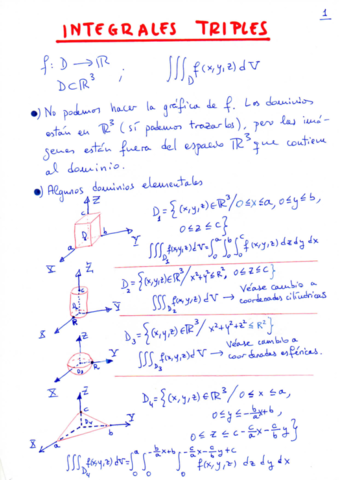 1
INTEGRALES TRIPLES
f: D → ℝ
D⊂ℝ³ ; ∭_D f(x,y,z) dV
•) No podemos hacer la gráfica de f. Los dominios
están en ℝ³ (sí podemos trazarlos), pero las imá-
genes están fuera del espacio ℝ³ que contiene
al dominio.
•) Algunos dominios elementales
Z
c
D₁
a
b
X
Y
D₁ = {(x,y,z)∈ℝ³ / 0≤x≤a, 0≤y≤b,
0≤z≤c}
∭_D₁ f(x,y,z)dV = ∫₀^a ∫₀^b ∫₀^c f(x,y,z) dz dy dx
Z
c
R
X
Y
D₂ = {(x,y,z)∈ℝ³ / x²+y²≤R², 0≤z≤c}
∭_D₂ f(x,y,z) dV → Véase cambio a
coordenadas cilíndricas
Z
R
X
Y
D₃ = {(x,y,z)∈ℝ³ / x²+y²+z²≤R²}
∭_D₃ f(x,y,z) dV → Véase cambio a
coordenadas esféricas.
Z
c
D₄
a
b
X
Y
D₄ = {(x,y,z)∈ℝ³ / 0≤x≤a,
0≤y≤-b/a x+b,
0≤z≤c-c/a x-c/b y}
∭_D₄ f(x,y,z)dV = ∫₀^a ∫₀^(-b/a x+b) ∫₀^(-c/a x-c/b y+c) f(x,y,z) dz dy dx